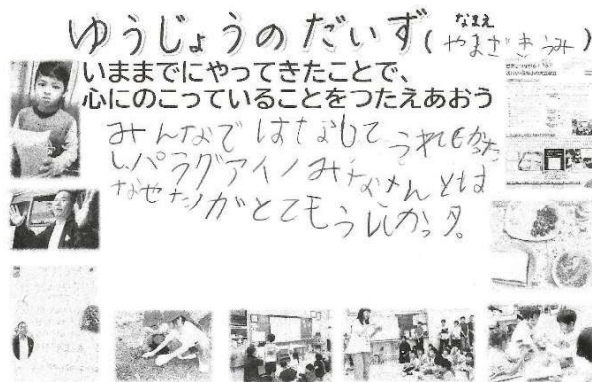 ゆうじょうのだいず(なまえ やまざきうみ)
いままでにやってきたことで、
心にのこっていることをつたえあおう
みんなではなして うれしかった
しパラグアイノみなさんとは
なせたノがとてもうしかっタ。